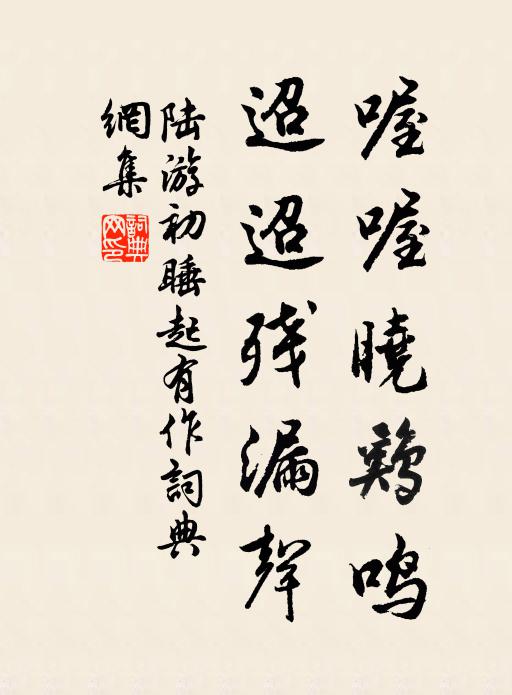 喔喔曉鷄鳴
迢迢殘漏聲
陆游初睡起有作詞典
網集
詞典
网印